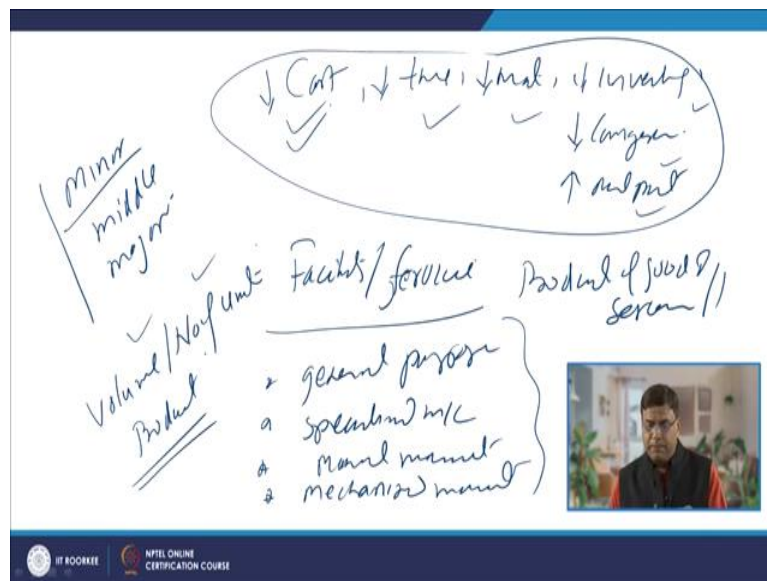 ↓ Cost, ↓ time, ↓ mat, ↓ Inventory,
↓ Congesn.
↑ output
Minor
middle
major
Volume/No of unit
Product
Facility/Service
Product of good &
general purpose
specialised m/c
manual
mechanized
IIT ROORKEE
NPTEL ONLINE
CERTIFICATION COURSE